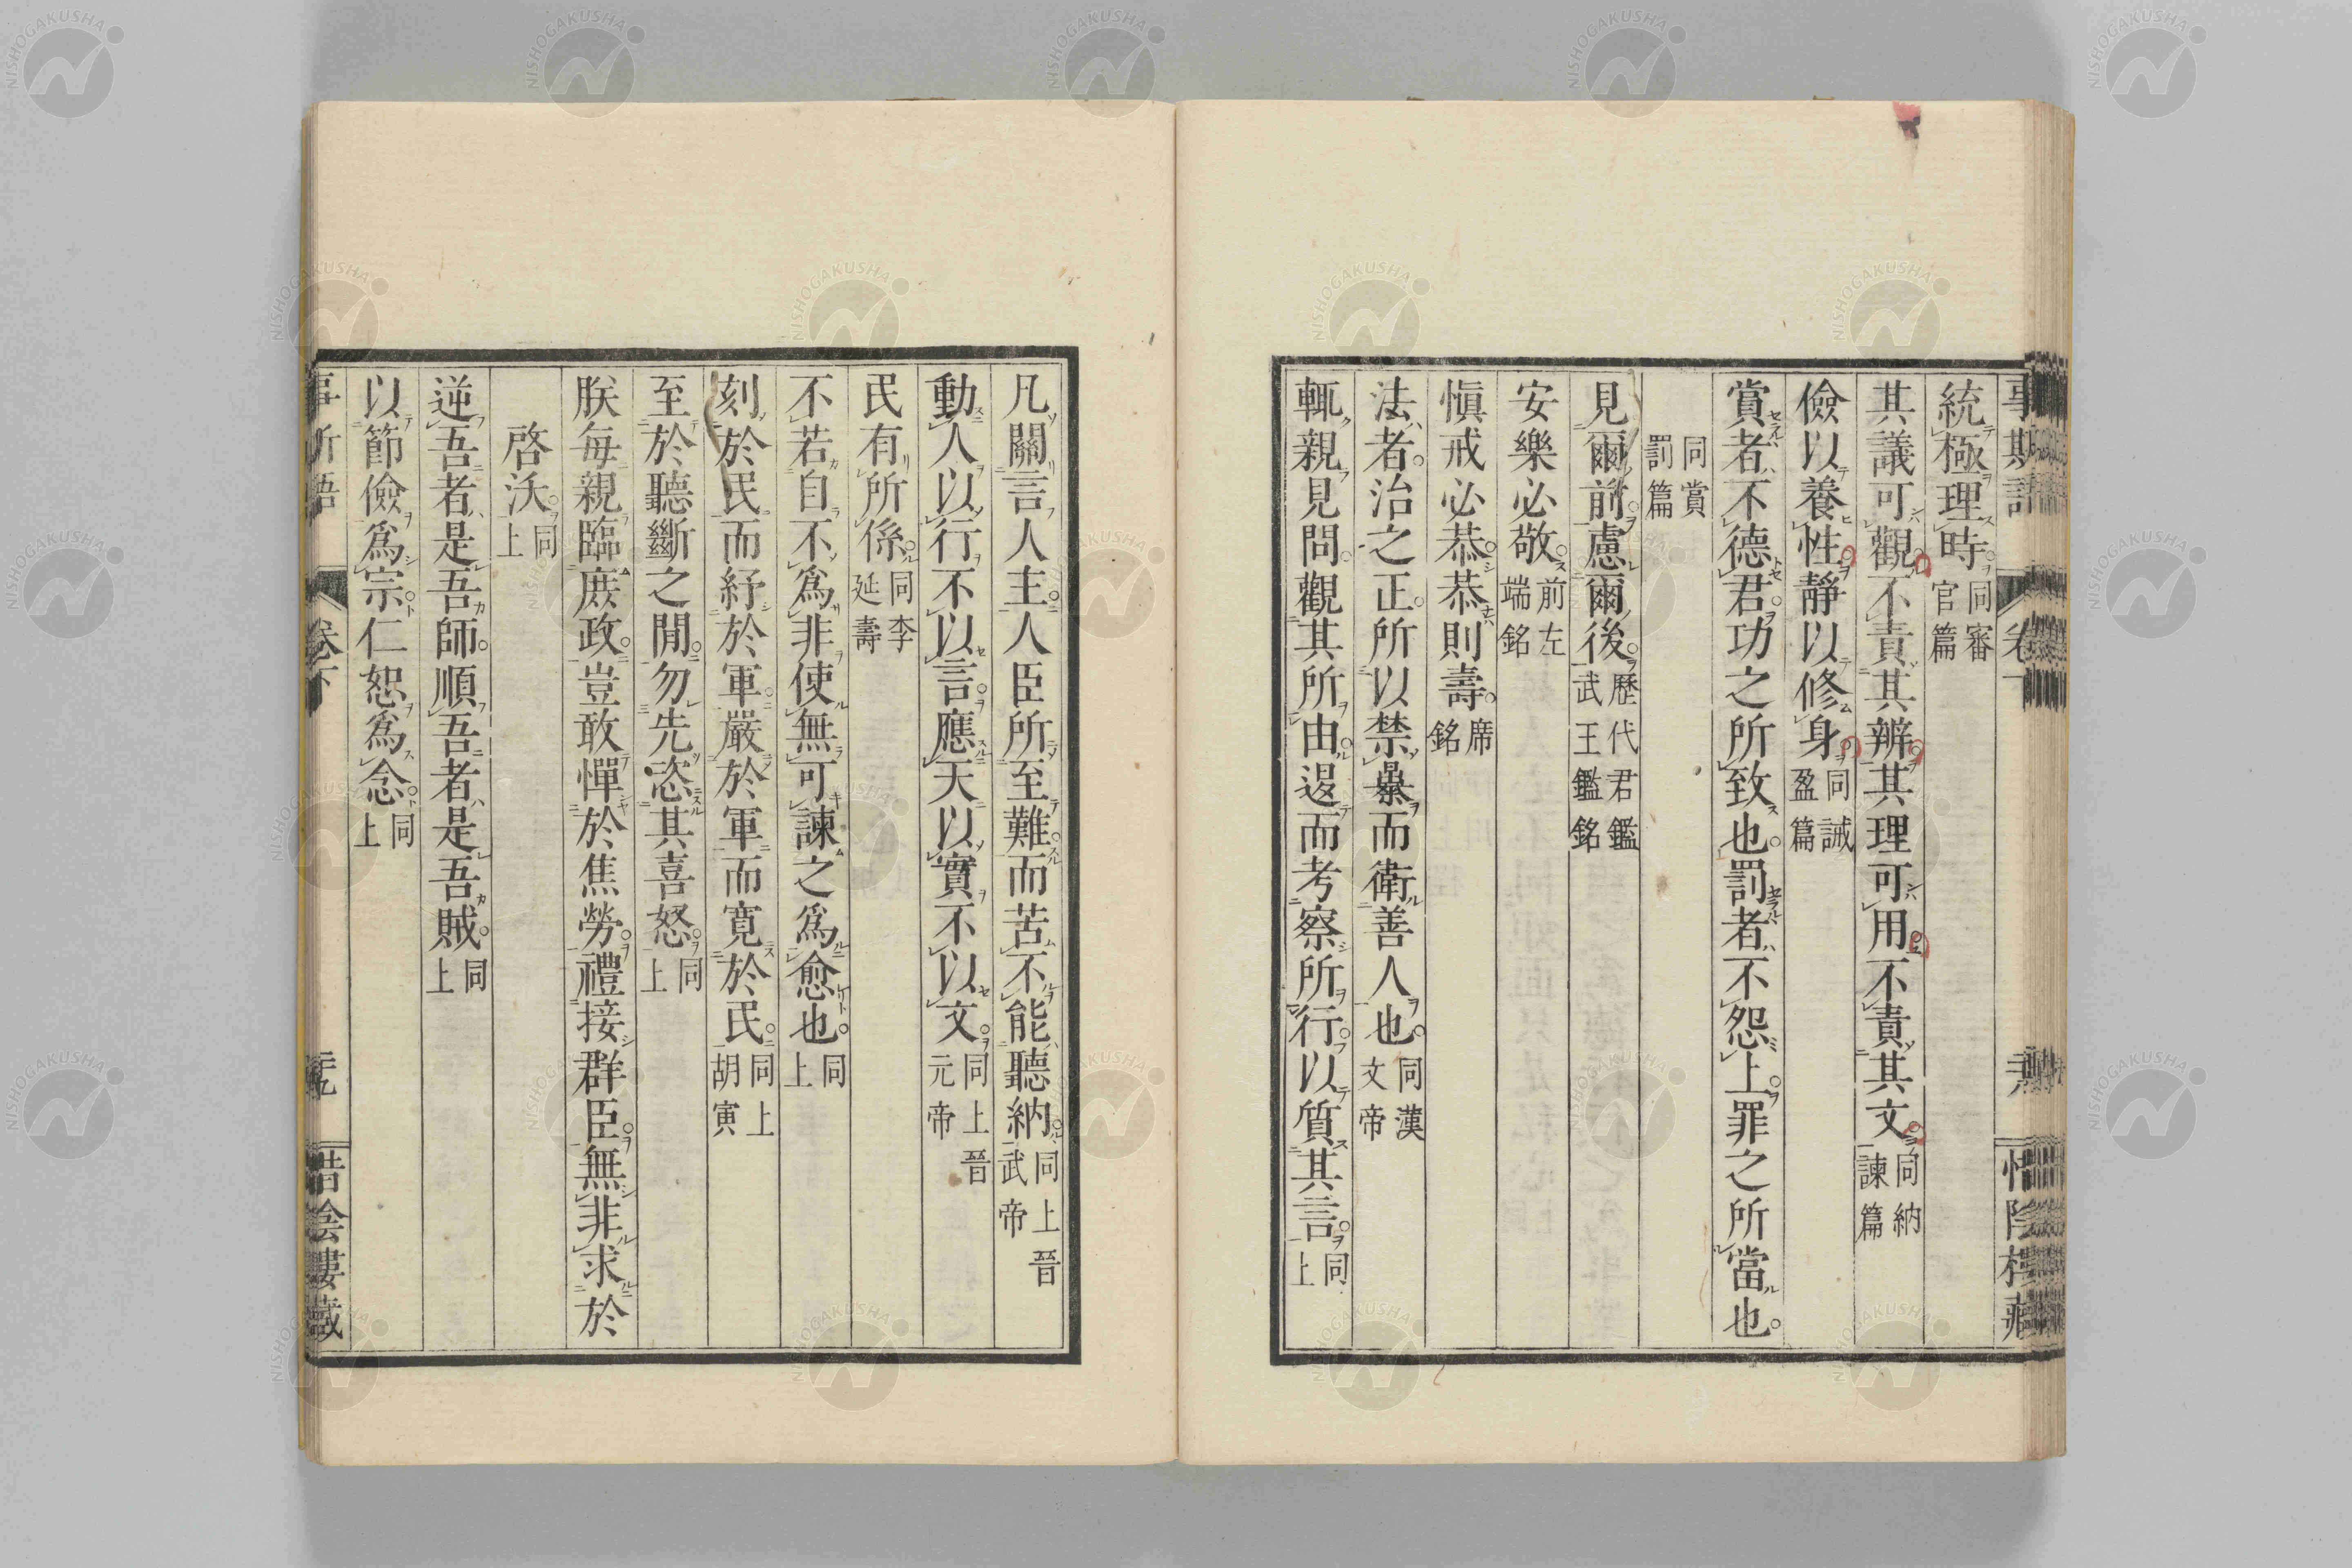 統極理時同審官篇
其議可觀不責其辨其理可用不責其文同納諫篇
儉以養性靜以修身同誡盈篇
賞者不德君功之所致也罰者不怨上罪之所當也
同賞罰篇
見爾前慮爾後歷代君鑑武王鑑銘
安樂必敬前左端銘
愼戒必恭恭則壽席銘
法者治之正所以禁暴而衛善人也同漢文帝
輒親見問觀其所由退而考察所行以質其言同上
凡關言人主人臣所至難而苦不能聽納同上晉武帝
動人以行不以言應天以實不以文同上晉元帝
民有所係同李延壽
不若自不爲非使無可諫之爲愈也同上
刻於民而紓於軍嚴於軍而寬於民同上胡寅
至於聽斷之閒勿先恣其喜怒同上
朕每親臨庶政豈敢憚於焦勞禮接群臣無非求於
啓沃同上
逆吾者是吾師順吾者是吾賊同上
以節儉爲宗仁恕爲念同上
卷下
惜陰樓藏
NISHOGAKUSHA